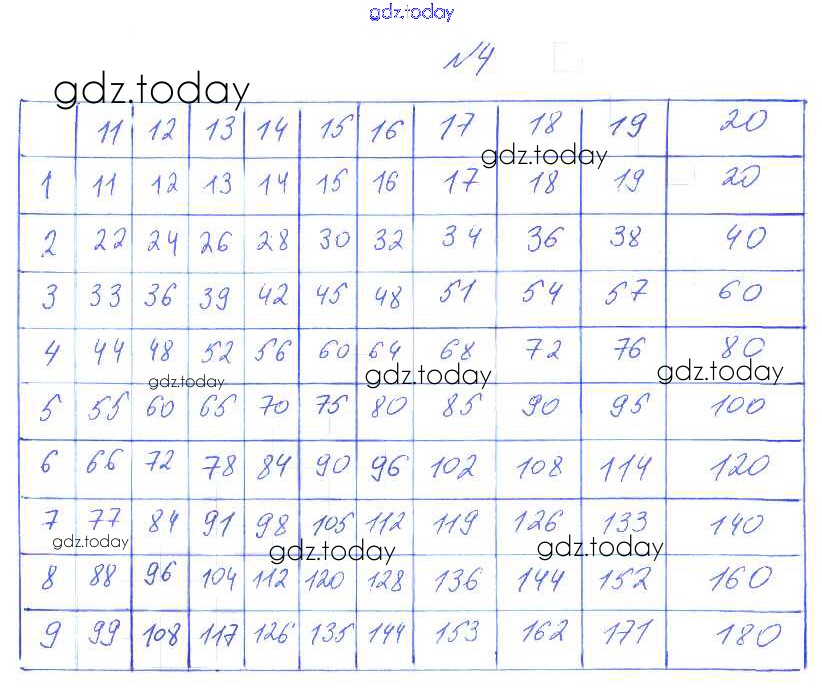 gdz.today
№4
gdz.today
11 12 13 14 15 16 17 18 19 20
gdz.today
1 11 12 13 14 15 16 17 18 19 20
2 22 24 26 28 30 32 34 36 38 40
3 33 36 39 42 45 48 51 54 57 60
4 44 48 52 56 60 64 68 72 76 80
gdz.today gdz.today gdz.today
5 55 60 65 70 75 80 85 90 95 100
6 66 72 78 84 90 96 102 108 114 120
7 77 84 91 98 105 112 119 126 133 140
gdz.today gdz.today gdz.today
8 88 96 104 112 120 128 136 144 152 160
9 99 108 117 126 135 144 153 162 171 180